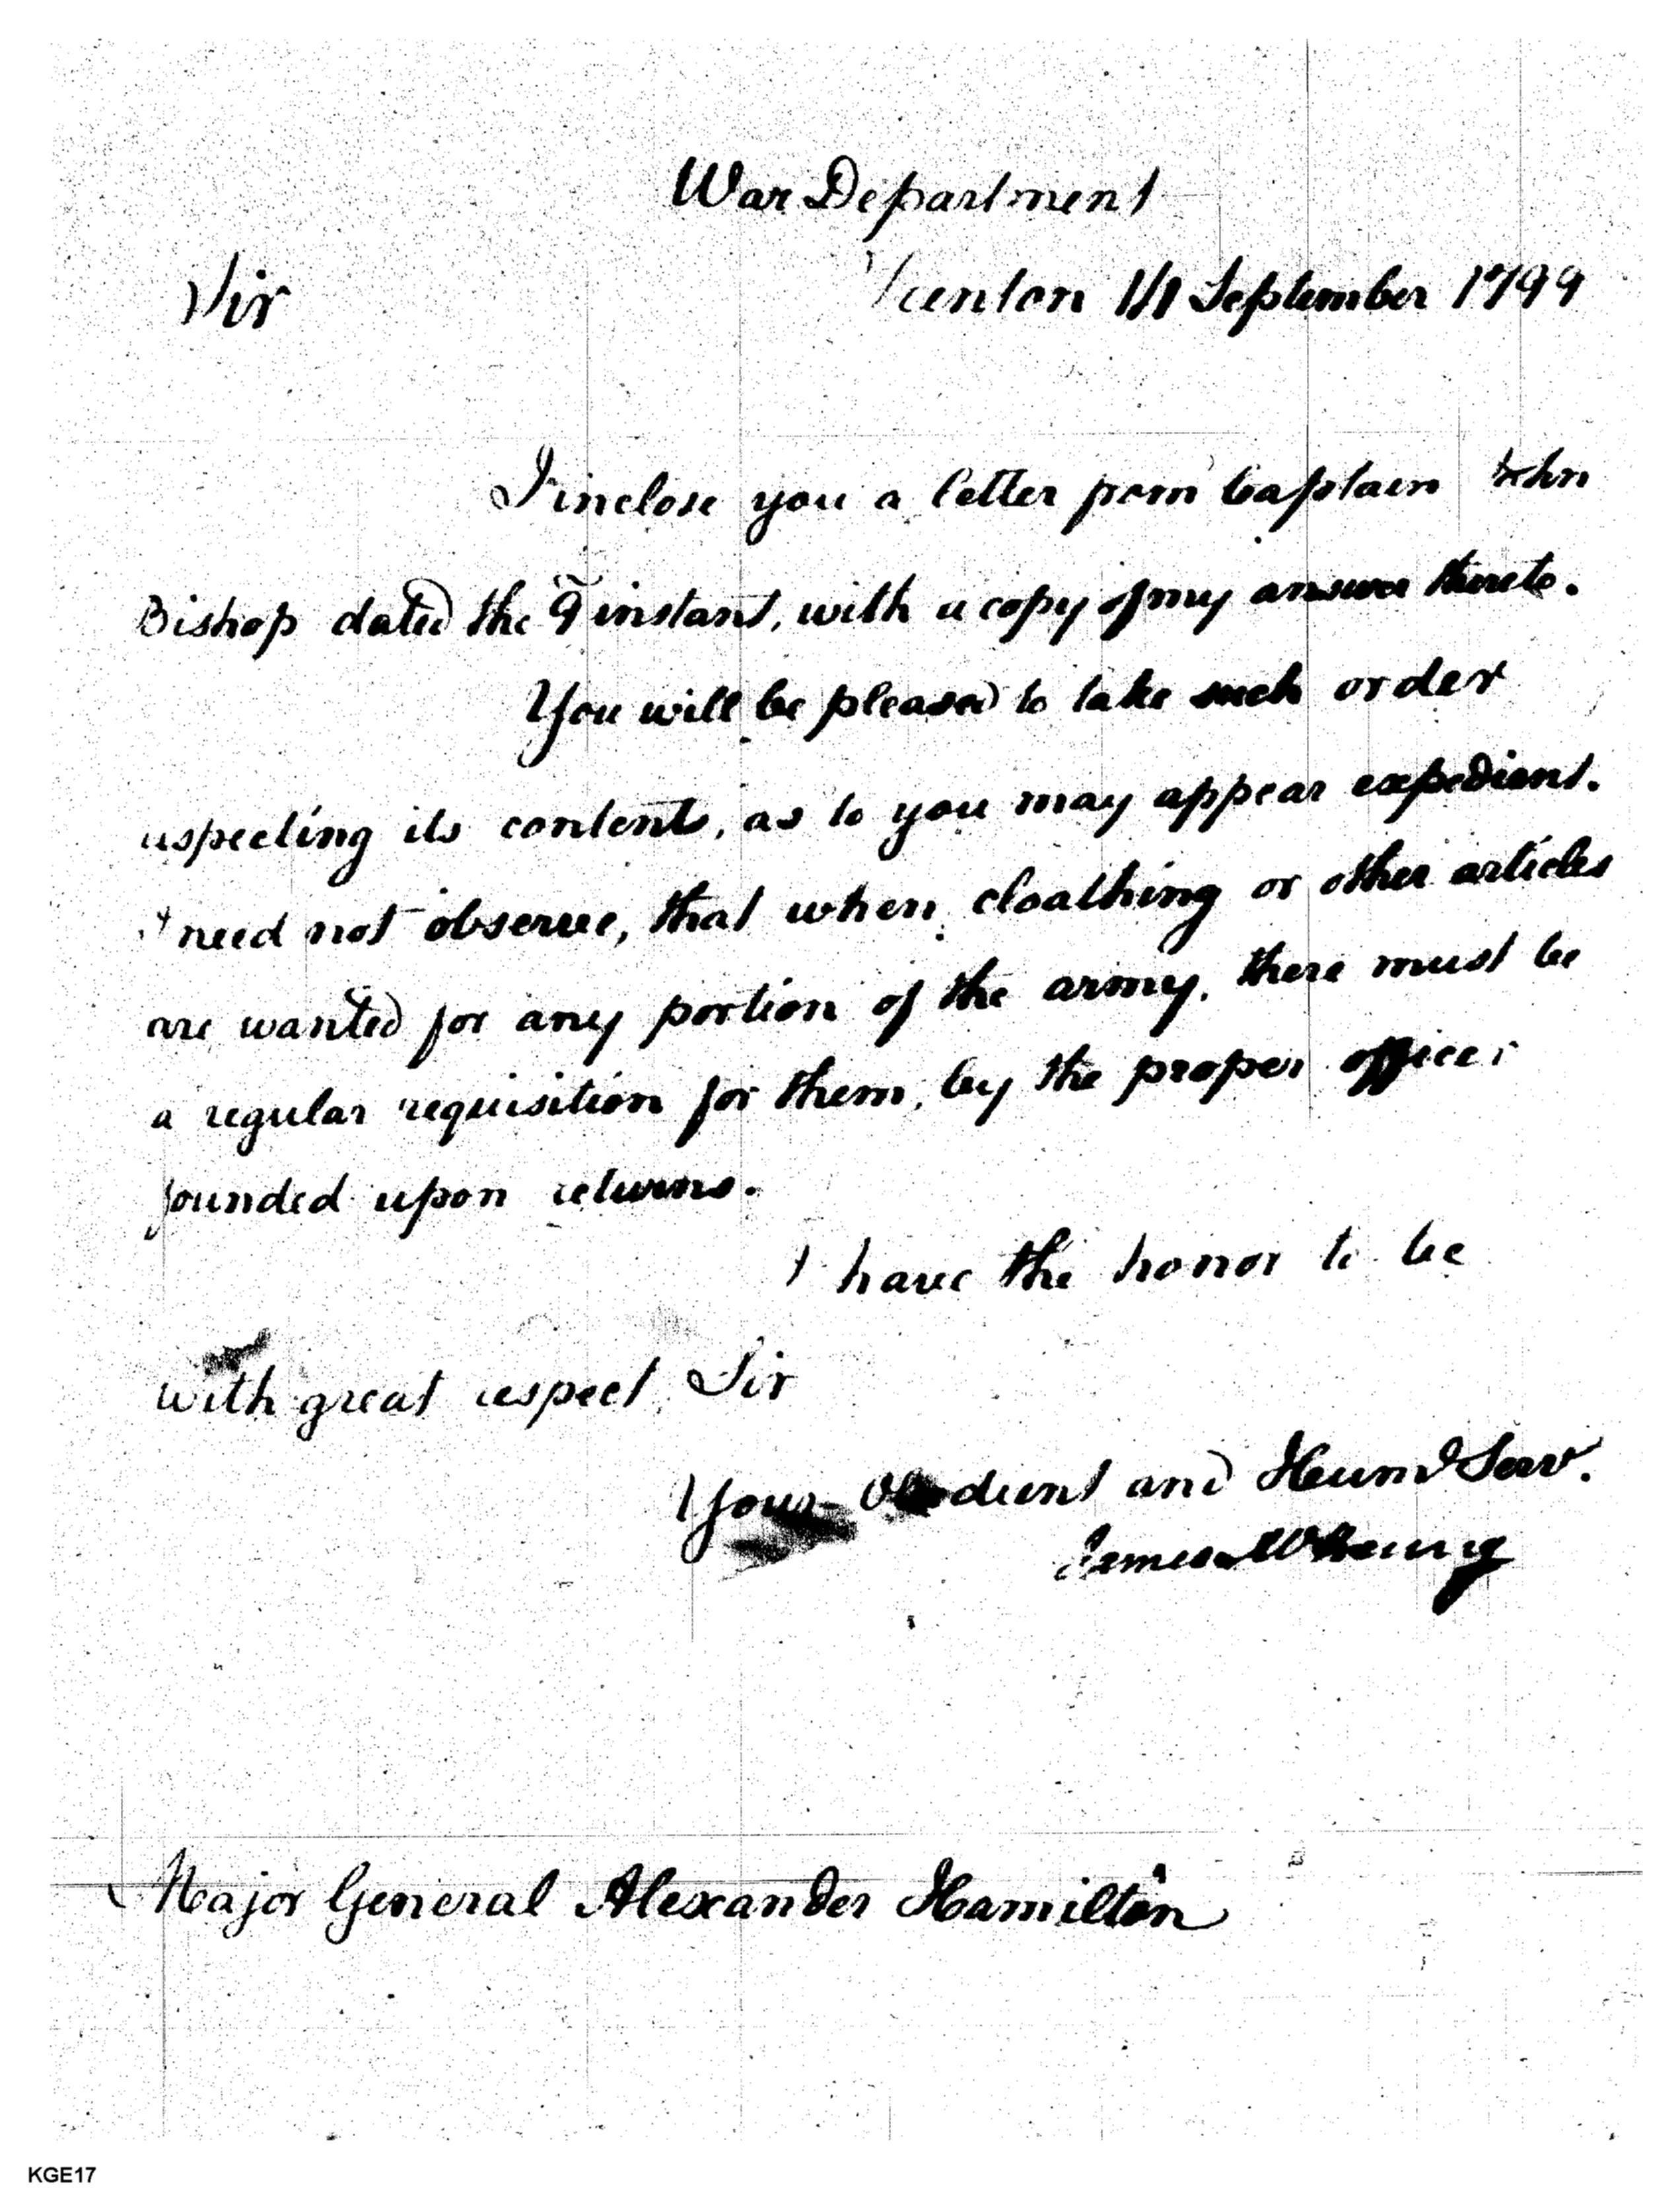 War Department
Sir
Trenton 14 September 1799
I inclose you a letter from Captain John
Bishop dated the 9 instant, with a copy of my answer thereto.
You will be pleased to take such order
respecting its contents, as to you may appear expedient.
I need not observe, that when cloathing or other articles
are wanted for any portion of the army, there must be
a regular requisition for them, by the proper officer
founded upon returns.
I have the honor to be
with great respect, Sir
Your Obedient and Hum Serv.
James McHenry
Major General Alexander Hamilton
KGE17